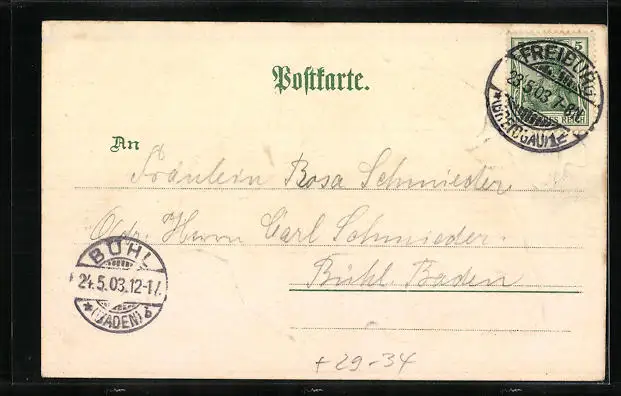 Postkarte.
5
FREIBURG
23.5.03.7-8N.
*(BREISGAU)1 *
REICH
An
Fräulein Rosa Schmieder
Adr. Herrn Carl Schmieder.
Bühl. Baden
BÜHL
24.5.03.12-1
*(BADEN)
+ 29-34